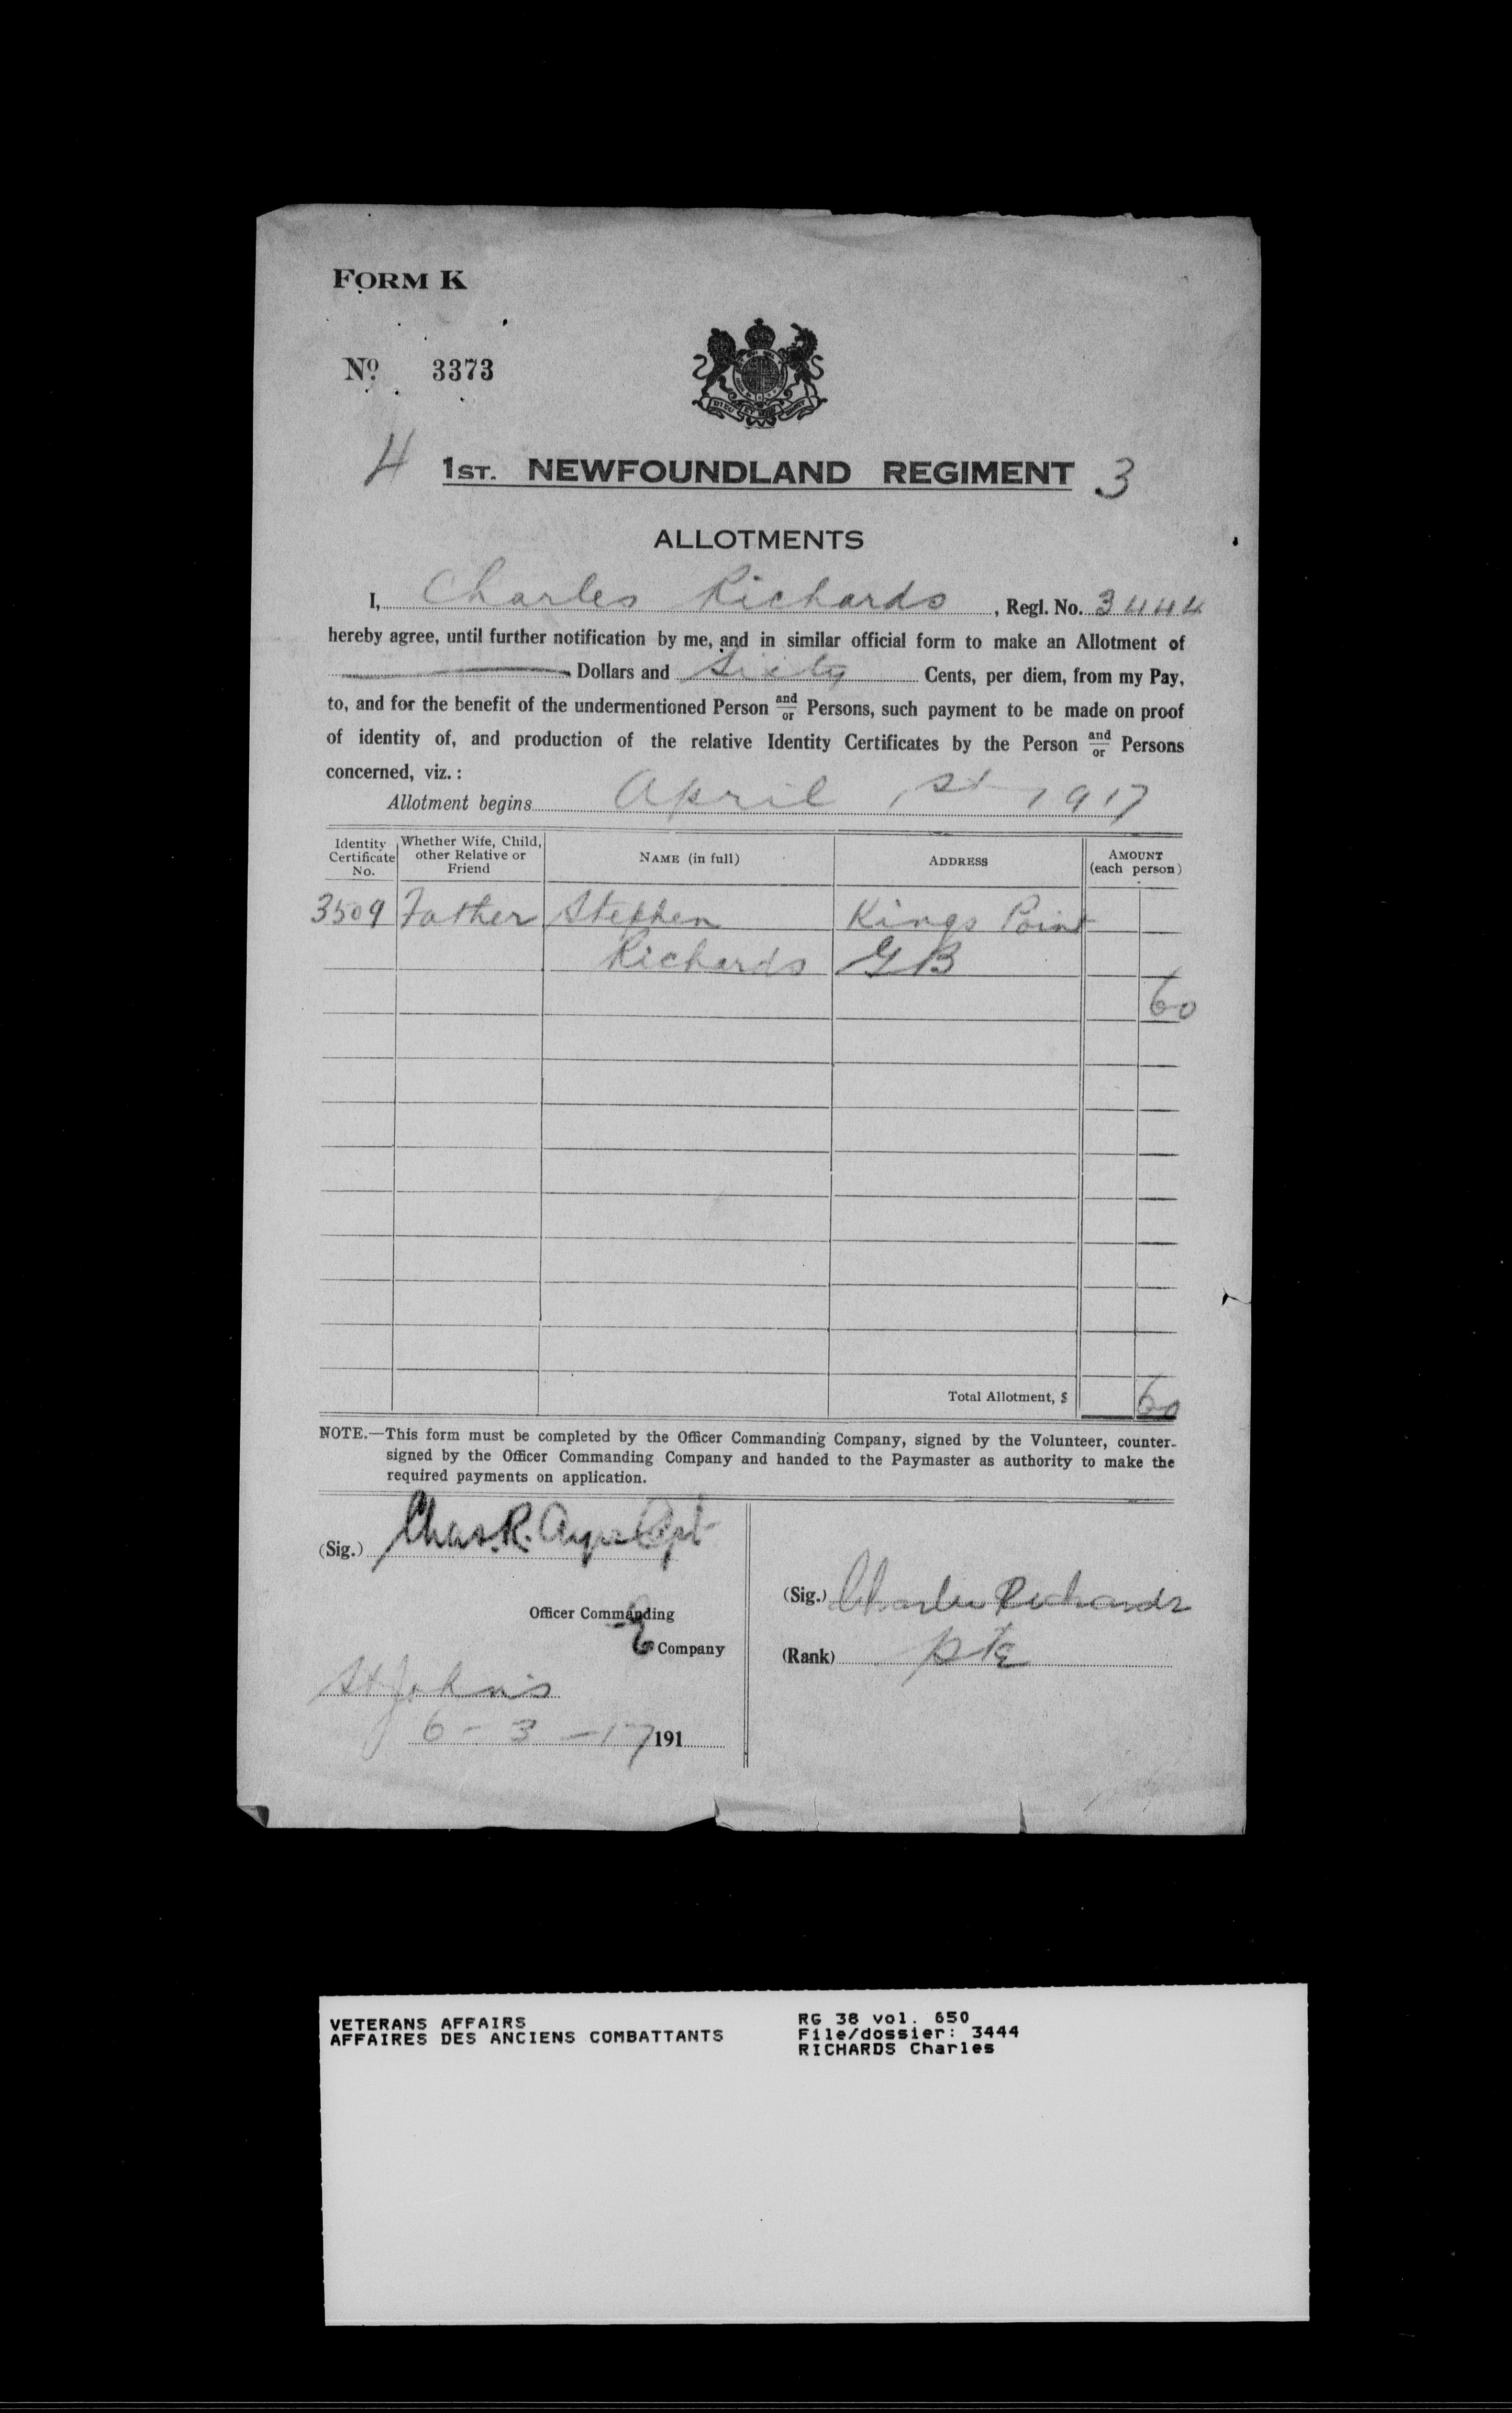 FORM K
No. 3373
4 1ST. NEWFOUNDLAND REGIMENT 3
ALLOTMENTS
I, Charles Richards, Regl. No. 3444
hereby agree, until further notification by me, and in similar official form to make an Allotment of
Dollars and Sixty Cents, per diem, from my Pay,
to, and for the benefit of the undermentioned Person and/or Persons, such payment to be made on proof
of identity of, and production of the relative Identity Certificates by the Person and/or Persons
concerned, viz.:
Allotment begins April 1st 1917
Identity Certificate No.
Whether Wife, Child, other Relative or Friend
NAME (in full)
ADDRESS
AMOUNT (each person)
3509 Father Stephen Kings Point
Richards G B
60
Total Allotment, $ 60
NOTE.—This form must be completed by the Officer Commanding Company, signed by the Volunteer, counter-
signed by the Officer Commanding Company and handed to the Paymaster as authority to make the
required payments on application.
(Sig.) Chas. R. Ayre Capt
Officer Commanding
E Company
St John's
6 - 3 - 17 191
(Sig.) Charles Richards
(Rank) Pte
VETERANS AFFAIRS
AFFAIRES DES ANCIENS COMBATTANTS
RG 38 vol. 650
File/dossier: 3444
RICHARDS Charles